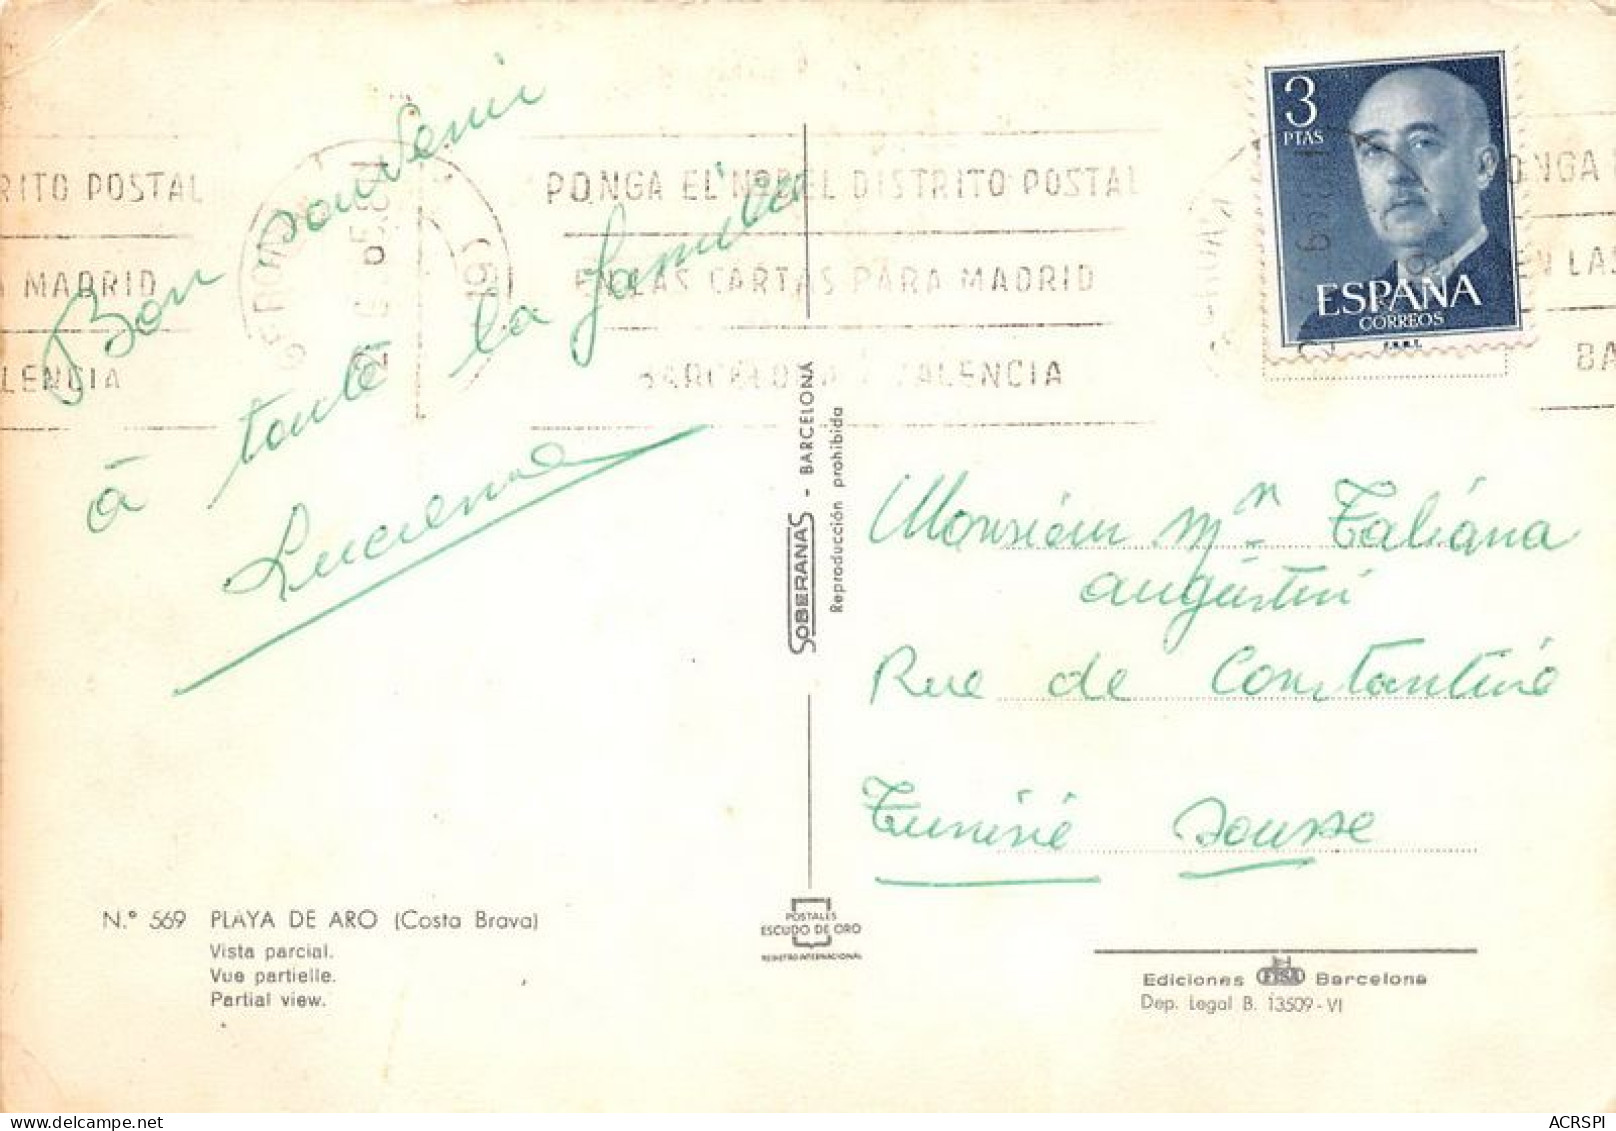 Bon souvenir
à toute la famille
Lucienne
N.° 569 PLAYA DE ARO (Costa Brava)
Vista parcial.
Vue partielle.
Partial view.
RITO POSTAL
A MADRID
LENCIA
GERONA
PONGA EL Nº DEL DISTRITO POSTAL
EN LAS CARTAS PARA MADRID
BARCELONA Y VALENCIA
SOBERANAS - BARCELONA
Reproducción prohibida
POSTALES
ESCUDO DE ORO
REGISTRO INTERNACIONAL
3
PTAS
ESPAÑA
CORREOS
F.N.M.T.
ONGA
EN LAS
BA
Monsieur
Rue de Constantine
Tunisie Sousse
Ediciones FISA Barcelona
Dep. Legal B. 13509 - VI
ACRSPI